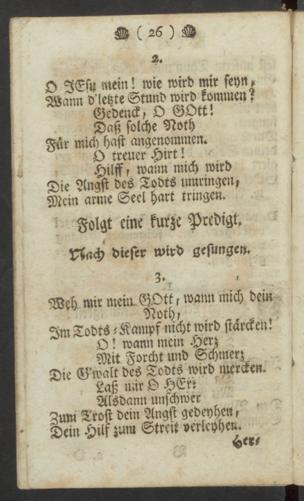 ( 26 )
2.
O JEsu mein! wie wird mir seyn,
Wann d'letzte Stund wird kommen?
Gedenck, O GOtt!
Daß solche Noth
Für mich hast angenommen.
O treuer Hirt!
Hilff, wann mich wird
Die Angst des Todts umringen,
Mein arme Seel hart tringen.
Folgt eine kurze Predigt.
Nach dieser wird gesungen.
3.
Weh mir mein GOtt, wann mich dein
Noth,
Im Todts-Kampf nicht wird stärcken!
O! wann mein Herz
Mit Forcht und Schmerz
Die G'walt des Todts wird mercken.
Laß mir O HErr
Alsdann unschwer
Zum Trost dein Angst gedeyhen,
Dein Hilf zum Streit verleyhen.
Her-